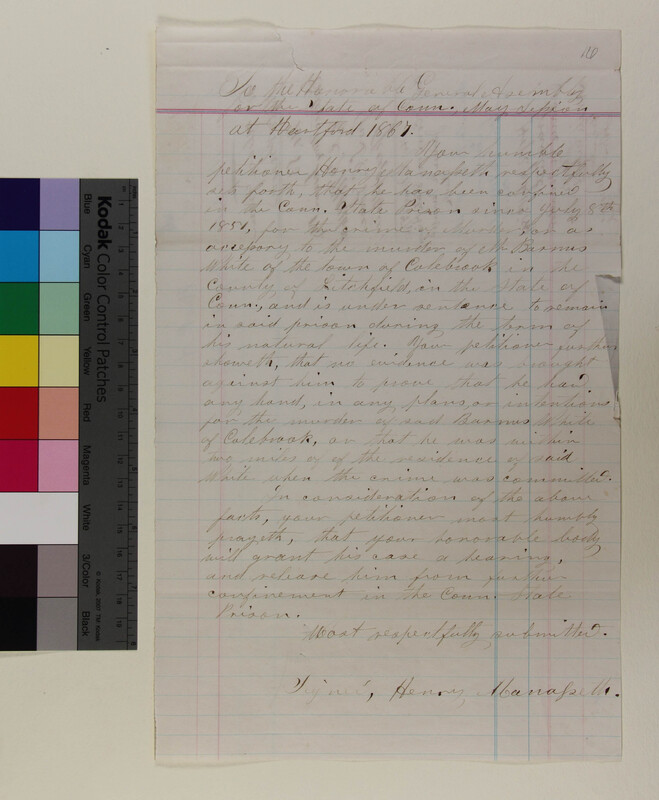 16
To the Honorable General Assembly
for the State of Conn. May Session
at Hartford 1867.
Your humble
petitioner Henry Manasseth respectfully
sets forth, that he has been confined
in the Conn. State Prison since July 8th
1851, for the crime of Murder or as
accessory to the murder, of Mr Barnus
White of the town of Colebrook in the
County of Litchfield, in the State of
Conn., and is under sentence to remain
in said prison during the term of
his natural life. Your petitioner further
showeth, that no evidence was brought
against him to prove that he had
any hand, in any plans, or intentions
for the murder of said Barnus White
of Colebrook, or that he was within
two miles of of the residence of said
White when the crime was committed.
In consideration of the above
facts, your petitioner most humbly
prayeth, that your honorable body
will grant his case a hearing,
and release him from further
confinement in the Conn. State
Prison.
Most respectfully submitted.
Signed, Henry, Manasseth.
Kodak Color Control Patches
Blue
Cyan
Green
Yellow
Red
Magenta
White
3/Color
Black